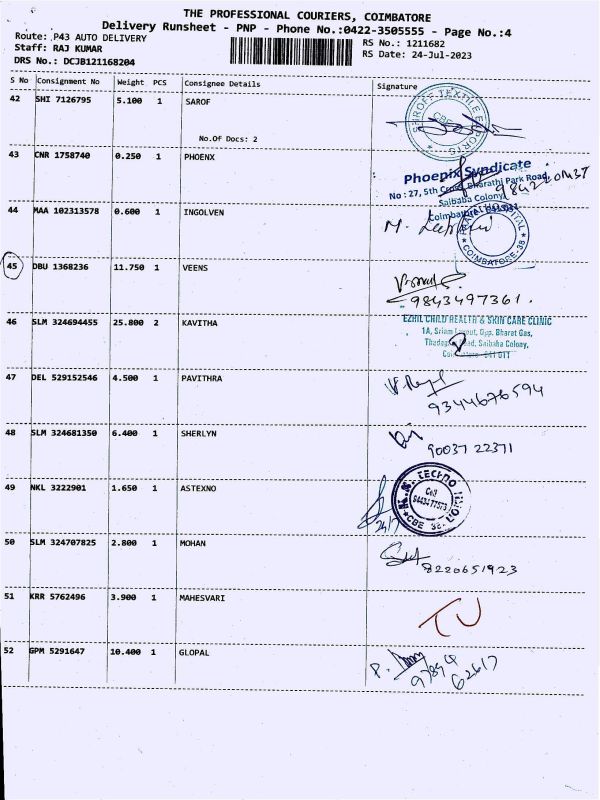 THE PROFESSIONAL COURIERS, COIMBATORE
Delivery Runsheet - PNP - Phone No.:0422-3505555 - Page No.:4
Route: P43 AUTO DELIVERY
RS No.: 1211682
Staff: RAJ KUMAR
RS Date: 24-Jul-2023
DRS No.: DCJB121168204
S No Consignment No Weight PCS Consignee Details Signature
42 SHI 7126795 5.100 1 SAROF
SHROFF TEXTILE
CBE
No.Of Docs: 2
43 CNR 1758740 0.250 1 PHOENX
Phoenix Syndicate
No : 27, 5th Cross, Bharathi Park Road,
Saibaba Colony,
Coimbatore - 641 011
44 MAA 102313578 0.600 1 INGOLVEN
M.
HOSPITAL
COIMBATORE. 38
45 DBU 1368236 11.750 1 VEENS
9843497361.
46 SLM 324694455 25.800 2 KAVITHA
EZHIL CHILD HEALTH & SKIN CARE CLINIC
1A, Sriam Layout, Opp. Bharat Gas,
Road, Saibaba Colony,
641 011
47 DEL 529152546 4.500 1 PAVITHRA
9344676594
48 SLM 324681350 6.400 1 SHERLYN
90037 22371
49 NKL 3222901 1.650 1 ASTEXNO
TECHNO
Cell
CBE 38
24/7
50 SLM 324707825 2.800 1 MOHAN
8220651923
51 KRR 5762496 3.900 1 MAHESVARI
TU
52 GPM 5291647 10.400 1 GLOPAL
P.
97894
62617